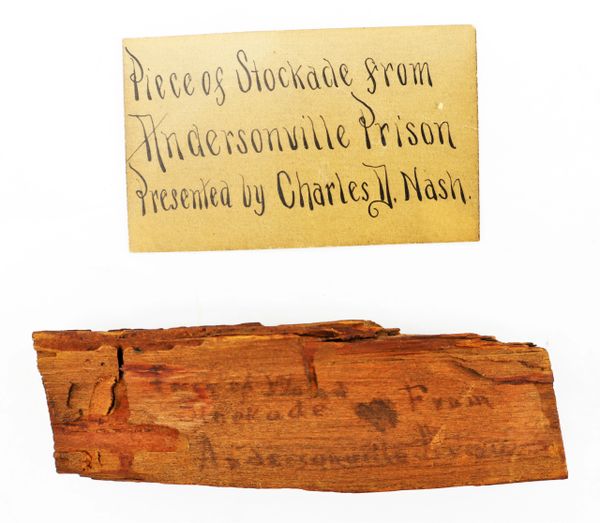 Piece of Stockade from
Andersonville Prison
Presented by Charles D. Nash.
Piece of Wood
Stockade From
Andersonville Prison